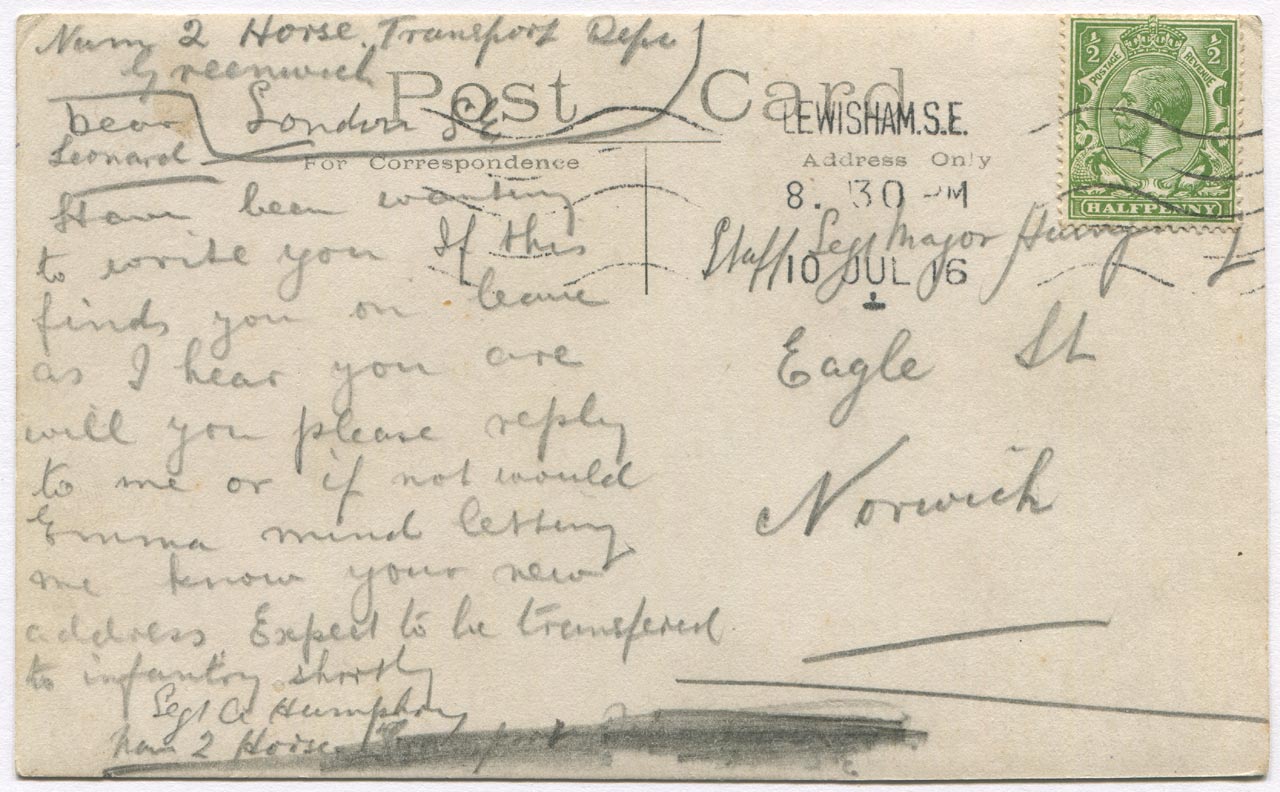 Num 2 Horse Transport Depo
Greenwich
London SE
Post Card
For Correspondence
Address Only
Dear
Leonard
Have been wanting
to write you If this
finds you on leave
as I hear you are
will you please reply
to me or if not would
Emma mind letting
me know your new
address. Expect to be transfered
to infantry shortly
Segt A Humphry
Num 2 Horse Transport
½ ½
POSTAGE REVENUE
HALFPENNY
LEWISHAM.S.E.
8. 30 PM
10 JUL 16
Staff Segt Major
Eagle St
Norwich